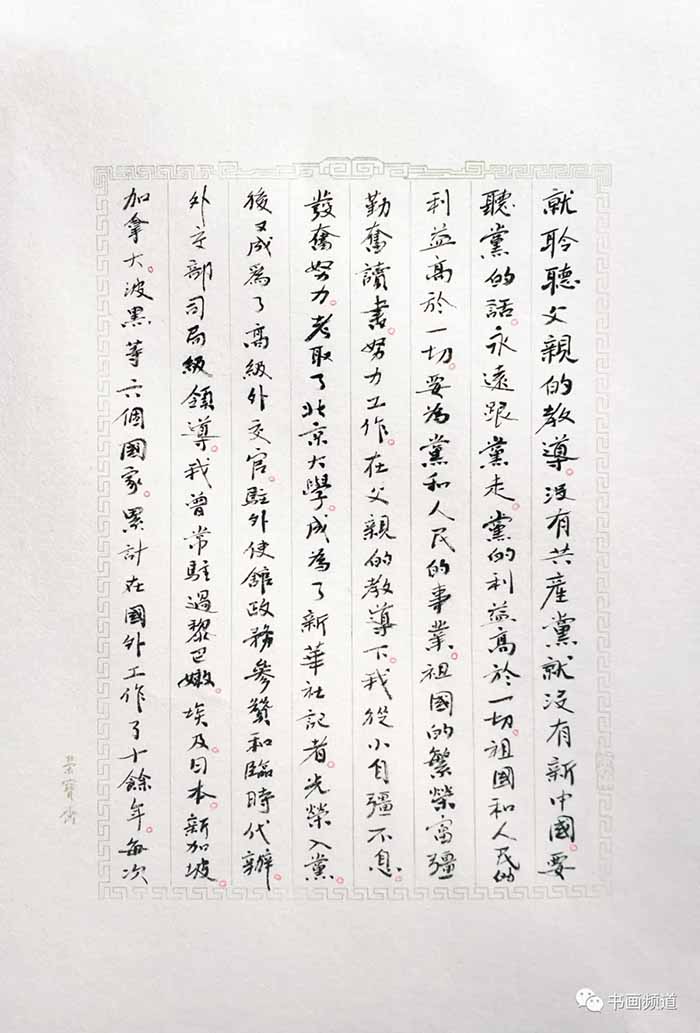 就聆聽父親的教導。沒有共產黨就沒有新中國。要
聽黨的話。永遠跟黨走。黨的利益高於一切。祖國和人民的
利益高於一切。要為黨和人民的事業。祖國的繁榮富彊
勤奮讀書。努力工作。在父親的教導下。我從小自彊不息。
發奮努力。考取了北京大學。成為了新華社記者。光榮入黨。
後又成爲了高級外交官。駐外使館政務參贊和臨時代辦。
外交部司局級領導。我曾常駐過黎巴嫩。埃及。日本。新加坡。
加拿大。波黑等六個國家。累計在國外工作了十餘年。每次
榮寶齋
书画频道